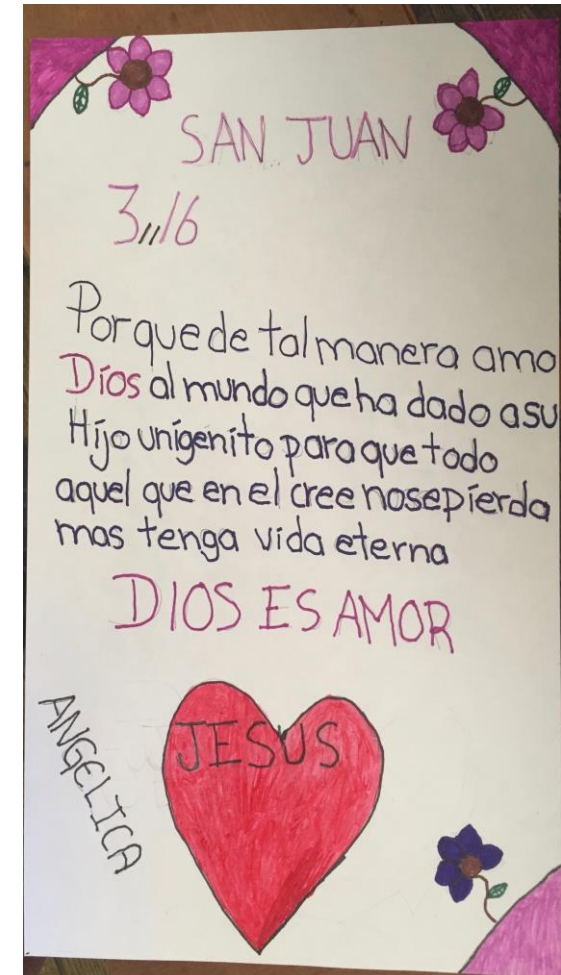 SAN JUAN
3,,16
Porque de tal manera amo
Dios al mundo que ha dado a su
Hijo unigenito para que todo
aquel que en el cree no se pierda
mas tenga vida eterna
DIOS ES AMOR
JESUS
ANGELICA